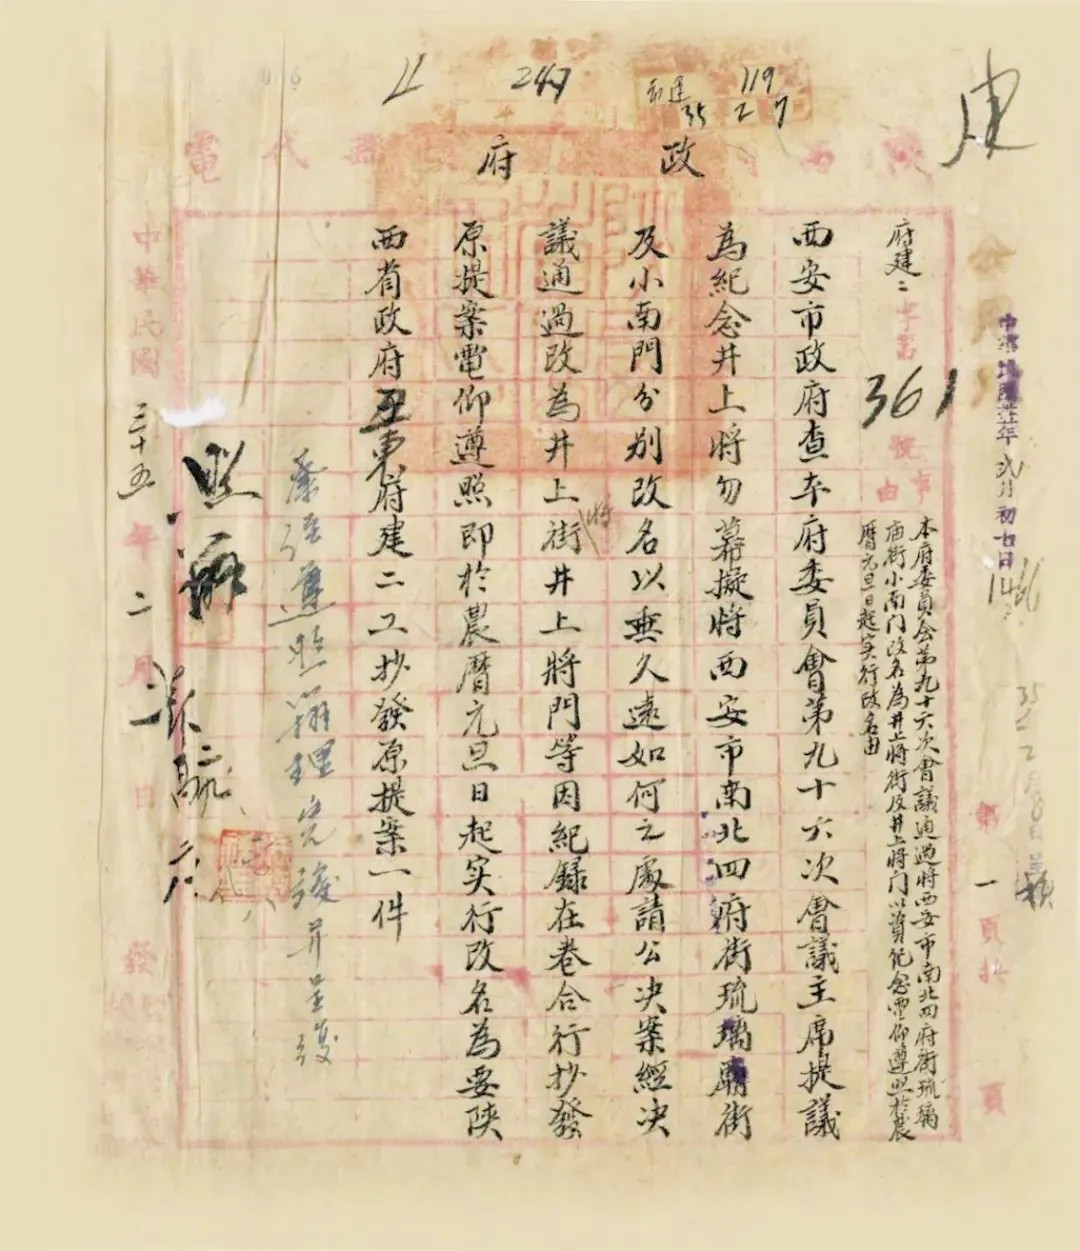 119
35 2 7
247
政府
代電
府建二字第361號
事由
本府委員会第九十六次會議通過將西安市南北四府街琉璃
庙街小南门改名為井上將街及井上將门以資紀念電仰遵照於農
曆元旦日起实行改名由
西安市政府查本府委員會第九十六次會議主席提議
為紀念井上將勿幕擬將西安市南北四府街琉璃廟街
及小南門分別改名以垂久遠如何之處請公决案經决
議通過改為井上將街井上將門等因紀録在卷合行抄發
原提案電仰遵照即於農曆元旦日起实行改名為要陝
西省政府丑東府建二工抄發原提案一件
遵照辦理
中華民國三十五年二月二日
發
第一頁共頁